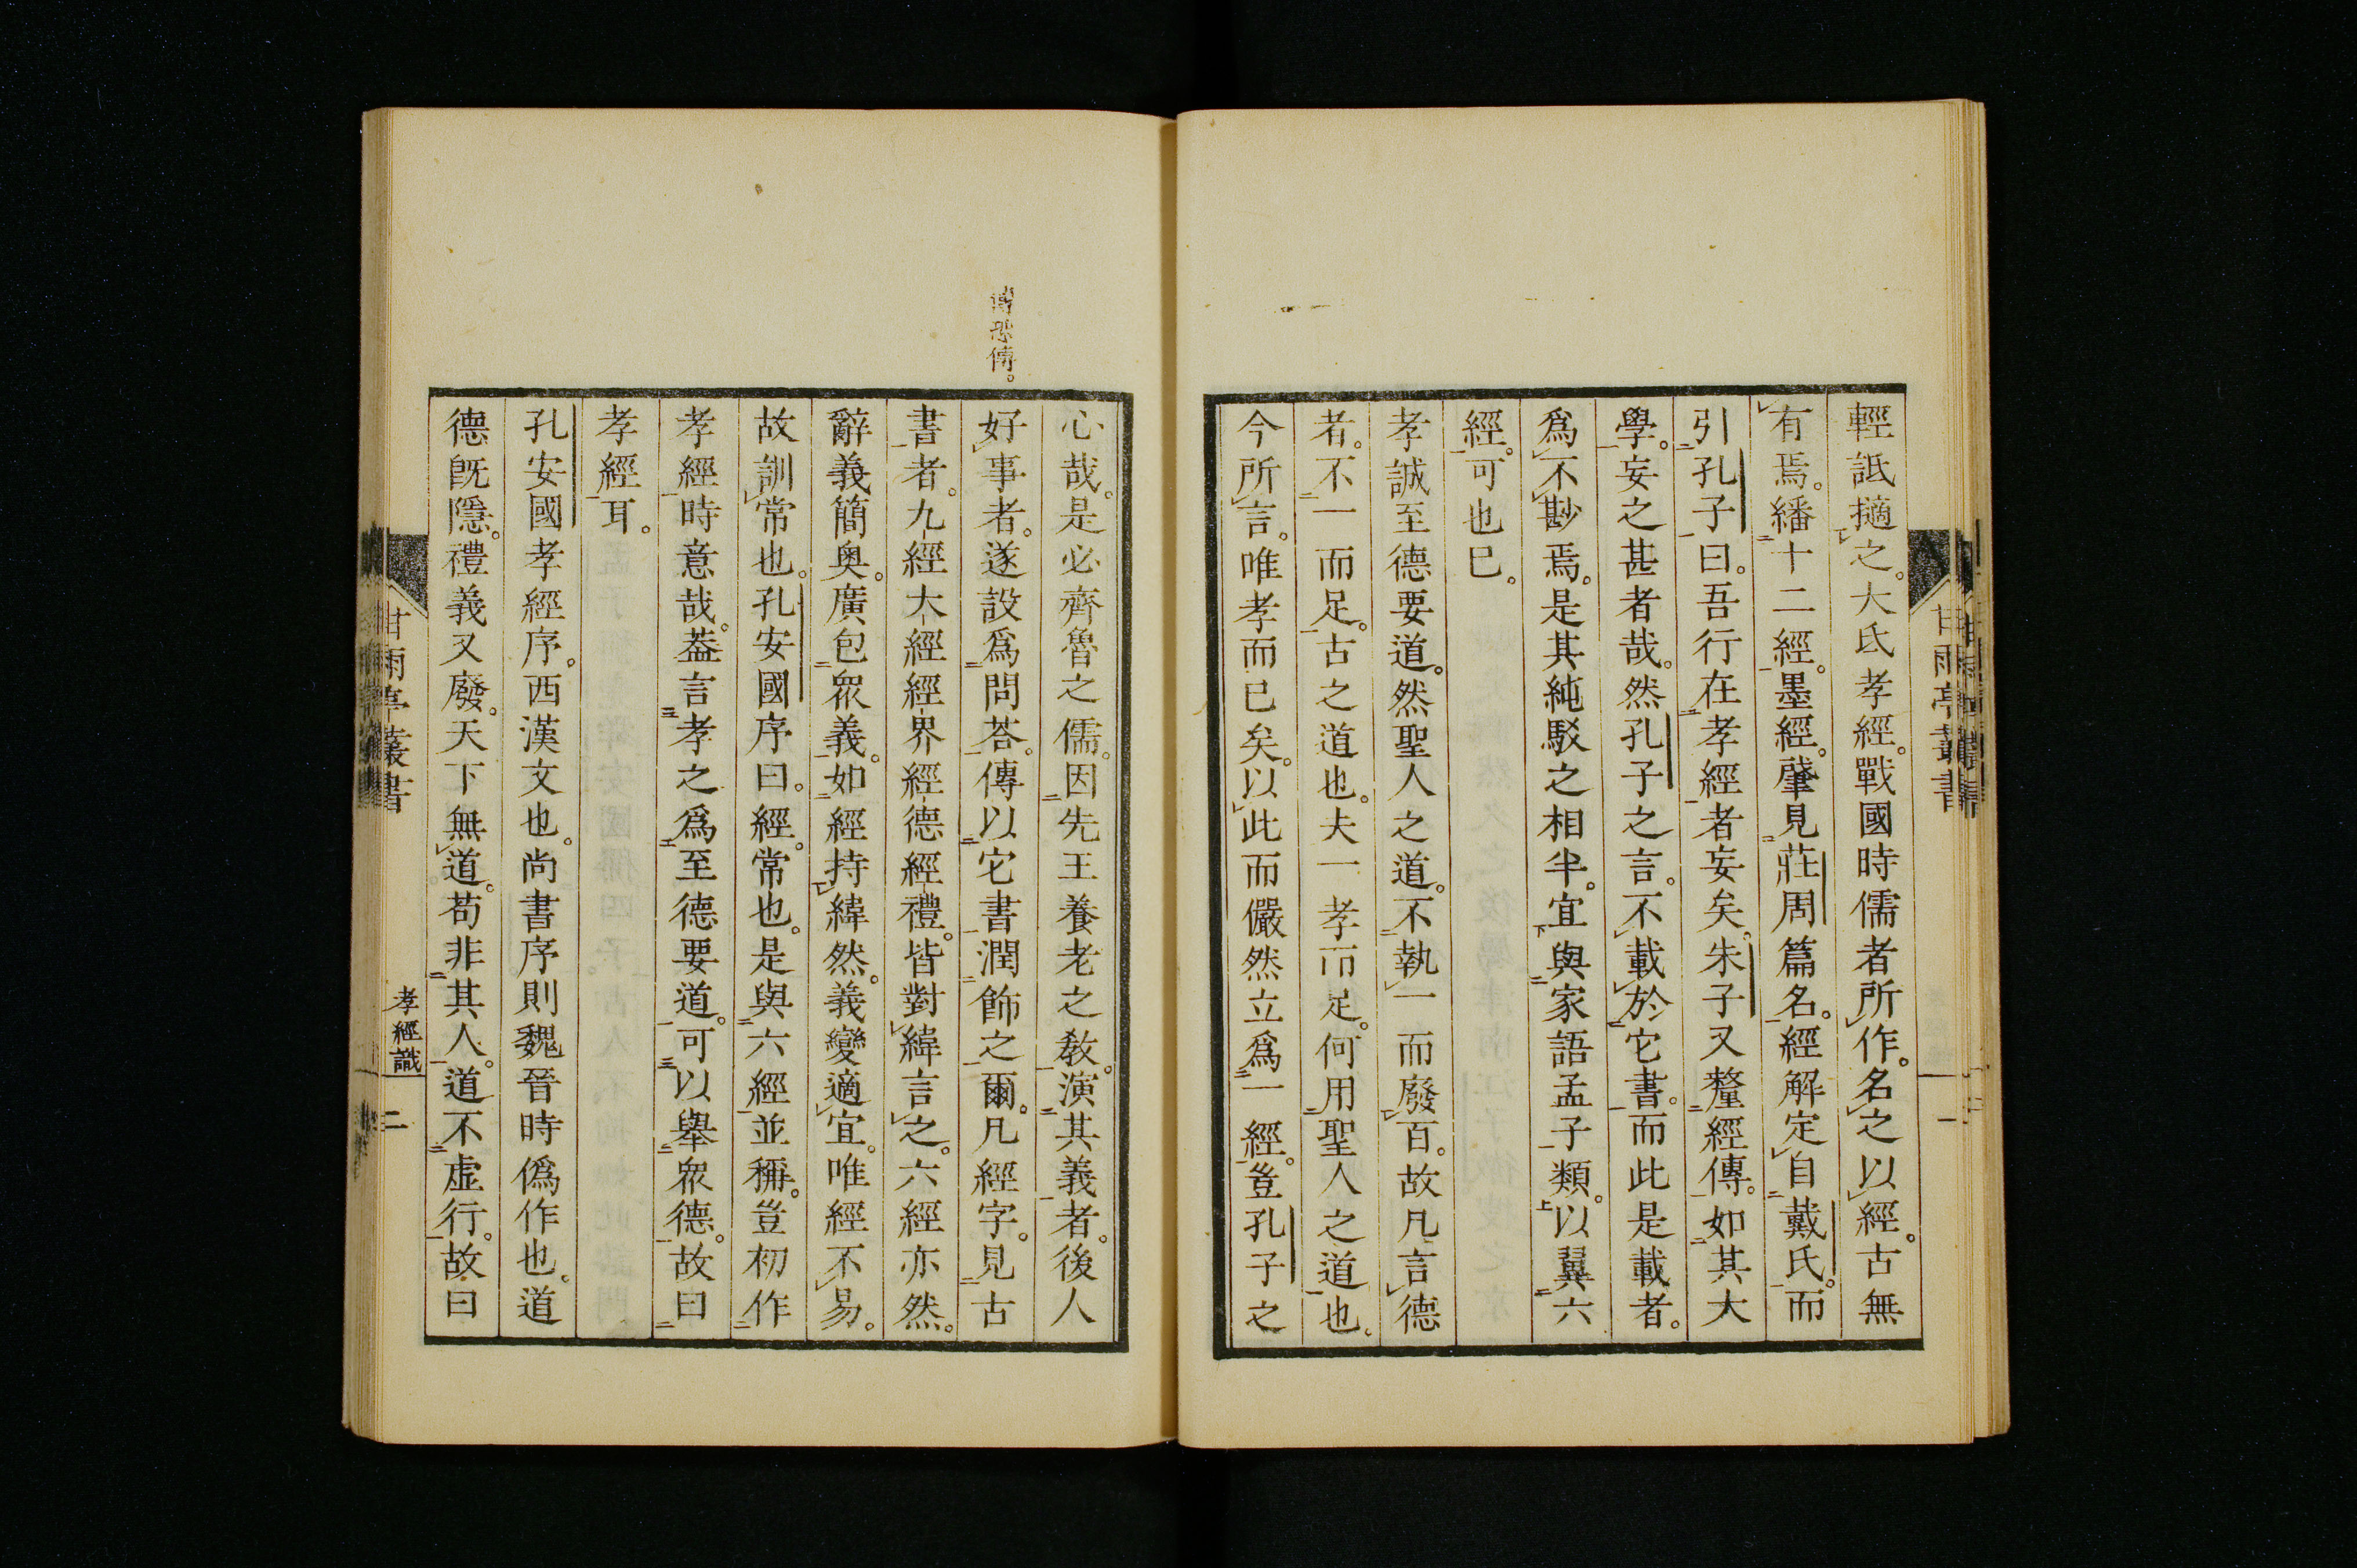 輕詆擿之。大氐孝經。戰國時儒者所作。名之以經。古無
有焉。繙十二經。墨經。肇見莊周篇名。經解定自戴氏。而
引孔子曰。吾行在孝經者妄矣。朱子又釐經傳。如其大
學。妄之甚者哉。然孔子之言。不載於它書。而此是載者。
爲不尠焉。是其純駁之相半。宜與家語孟子類。以翼六
經。可也已。
孝誠至德要道。然聖人之道。不執一而廢百。故凡言德
者。不一而足。古之道也。夫一孝而足。何用聖人之道也。
今所言。唯孝而已矣。以此而儼然立爲一經。豈孔子之
甘雨亭叢書
一
心哉。是必齊魯之儒。因先王養老之敎。演其義者。後人
好事者。遂設爲問荅。傳以它書潤飾之爾。凡經字。見古
書者。九經大經經界經德經禮。皆對緯言之。六經亦然。
辭義簡奧。廣包眾義。如經持緯然。義變適宜。唯經不易。
故訓常也。孔安國序曰。經。常也。是與六經並稱。豈初作
孝經時意哉。葢言孝之爲至德要道。可以舉眾德。故曰
孝經耳。
孔安國孝經序。西漢文也。尚書序則魏晉時僞作也。道
德旣隱。禮義又廢。天下無道。苟非其人。道不虛行。故曰
傳恐傅。
甘雨亭叢書
孝經識
二